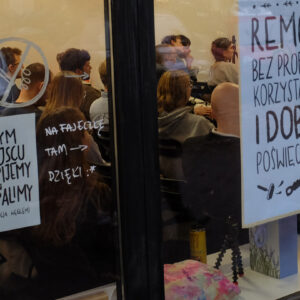 YM
JSCU
IJEMY
ALIMY
NA FAJECZKĘ
TAM →
DZIĘKI :*
REMO
BEZ PRO
KORZYSTA
I DOB
POŚWIĘC